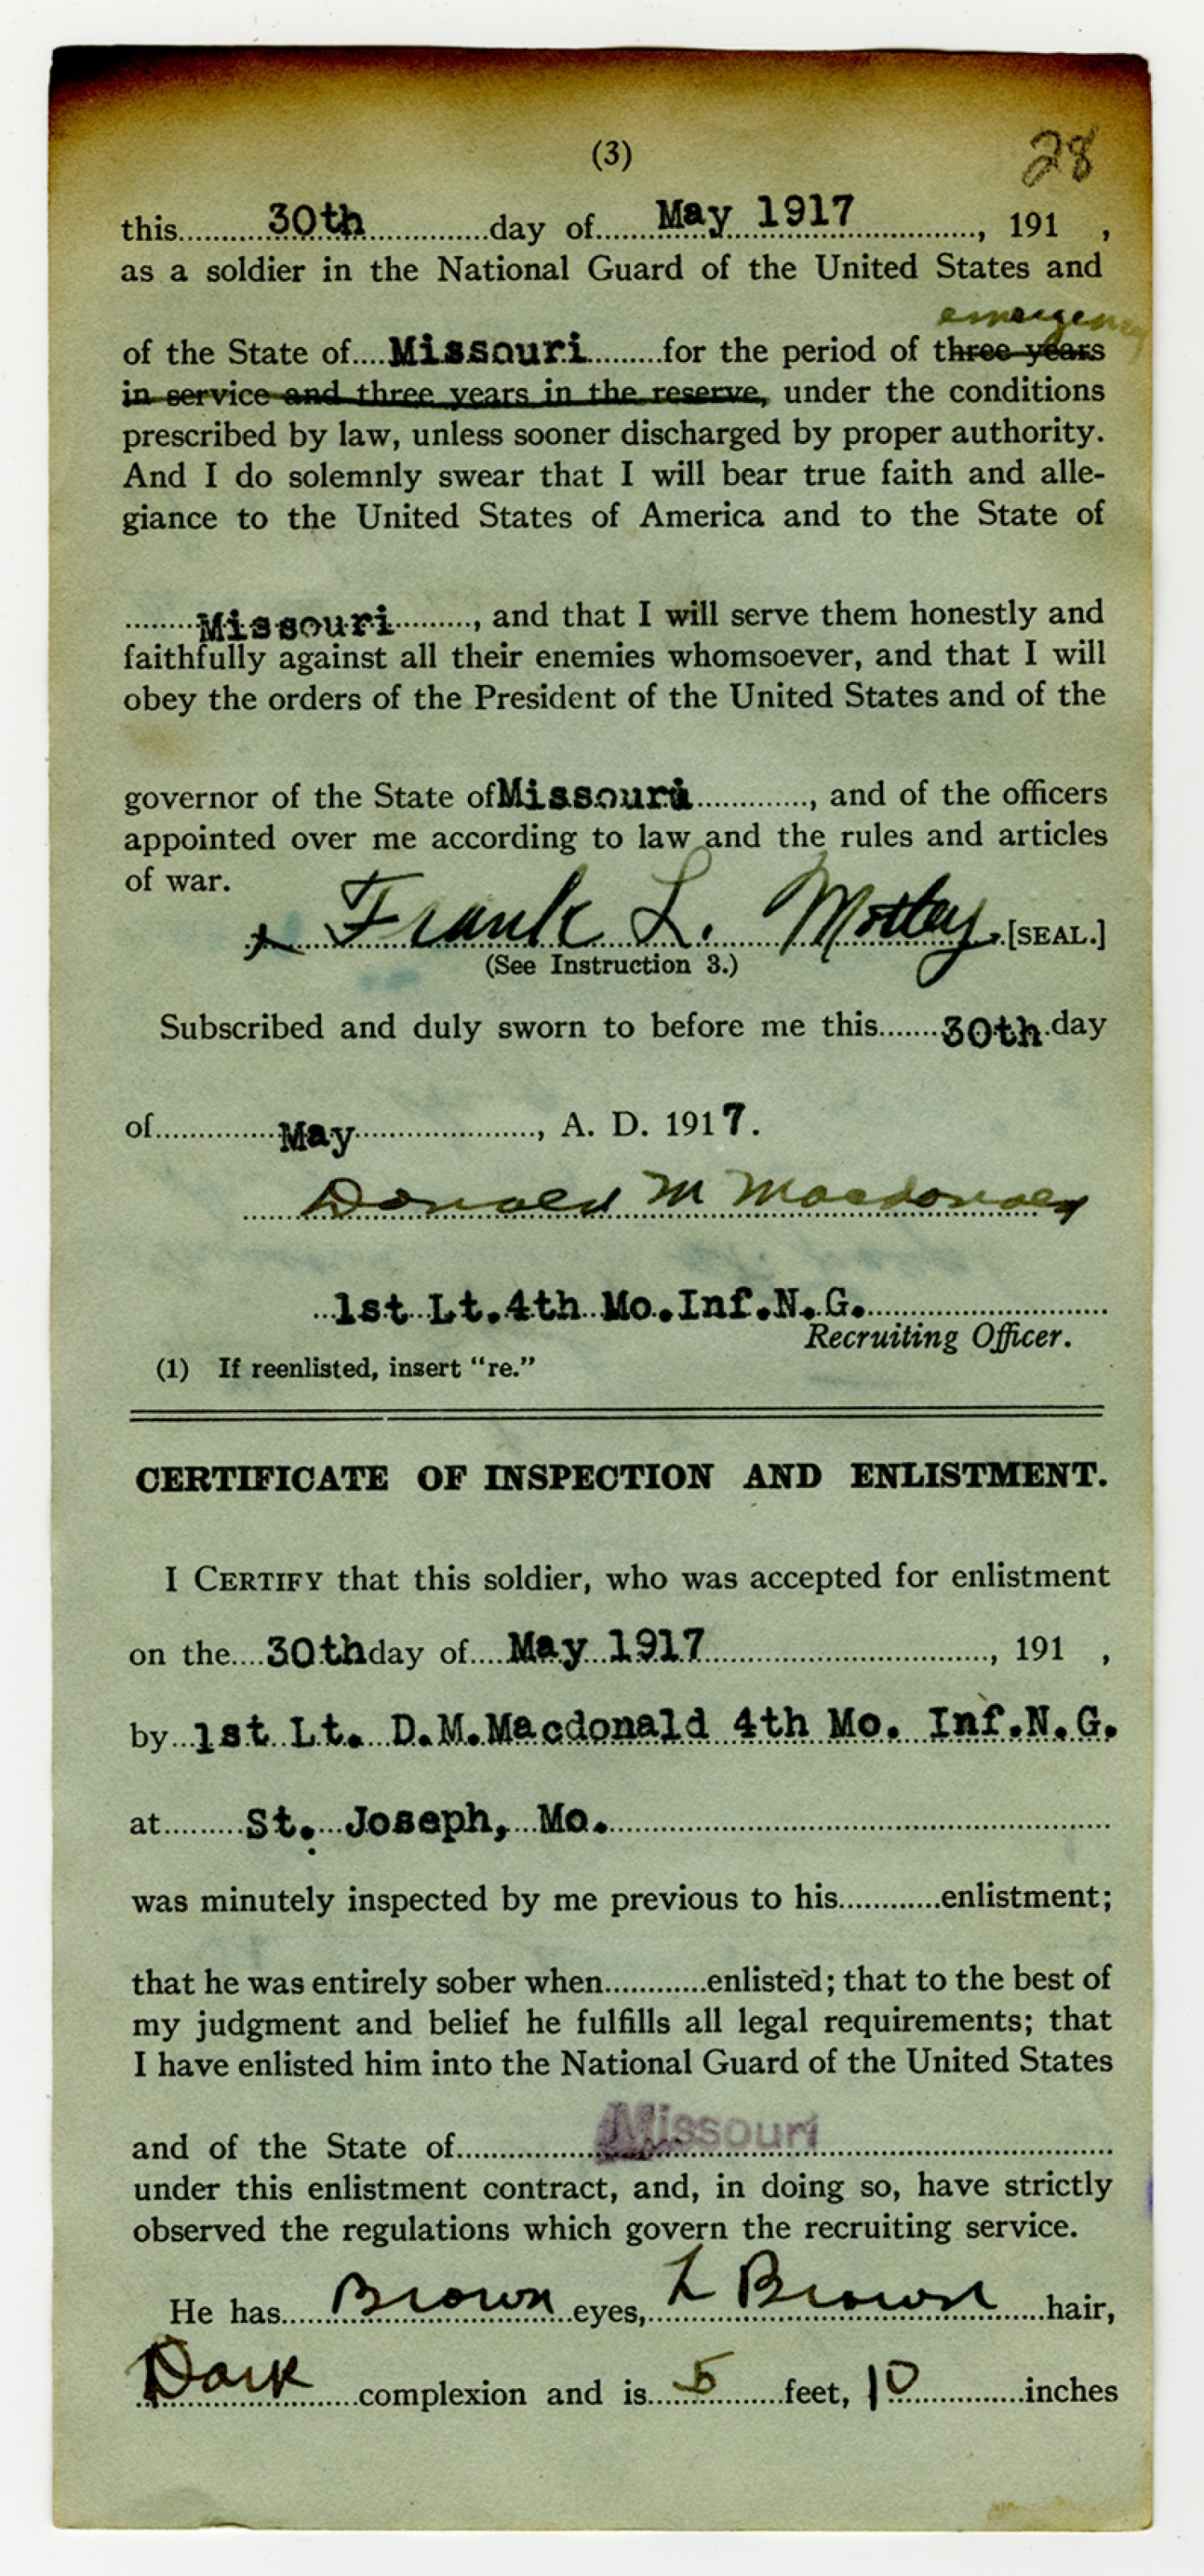 (3)
28
this 30th day of May 1917, 191 ,
as a soldier in the National Guard of the United States and
emergency
of the State of Missouri for the period of three years
in service and three years in the reserve, under the conditions
prescribed by law, unless sooner discharged by proper authority.
And I do solemnly swear that I will bear true faith and alle-
giance to the United States of America and to the State of
Missouri, and that I will serve them honestly and
faithfully against all their enemies whomsoever, and that I will
obey the orders of the President of the United States and of the
governor of the State of Missouri, and of the officers
appointed over me according to law and the rules and articles
of war.
x Frank L. [SEAL.]
(See Instruction 3.)
Subscribed and duly sworn to before me this 30th day
of May, A. D. 1917.
Donald M Macdonald
1st Lt. 4th Mo. Inf. N. G.
Recruiting Officer.
(1) If reenlisted, insert "re."
CERTIFICATE OF INSPECTION AND ENLISTMENT.
I CERTIFY that this soldier, who was accepted for enlistment
on the 30th day of May 1917, 191 ,
by 1st Lt. D.M.Macdonald 4th Mo. Inf.N.G.
at St. Joseph, Mo.
was minutely inspected by me previous to his enlistment;
that he was entirely sober when enlisted; that to the best of
my judgment and belief he fulfills all legal requirements; that
I have enlisted him into the National Guard of the United States
and of the State of Missouri
under this enlistment contract, and, in doing so, have strictly
observed the regulations which govern the recruiting service.
He has Brown eyes, L Brown hair,
Dark complexion and is 5 feet, 10 inches